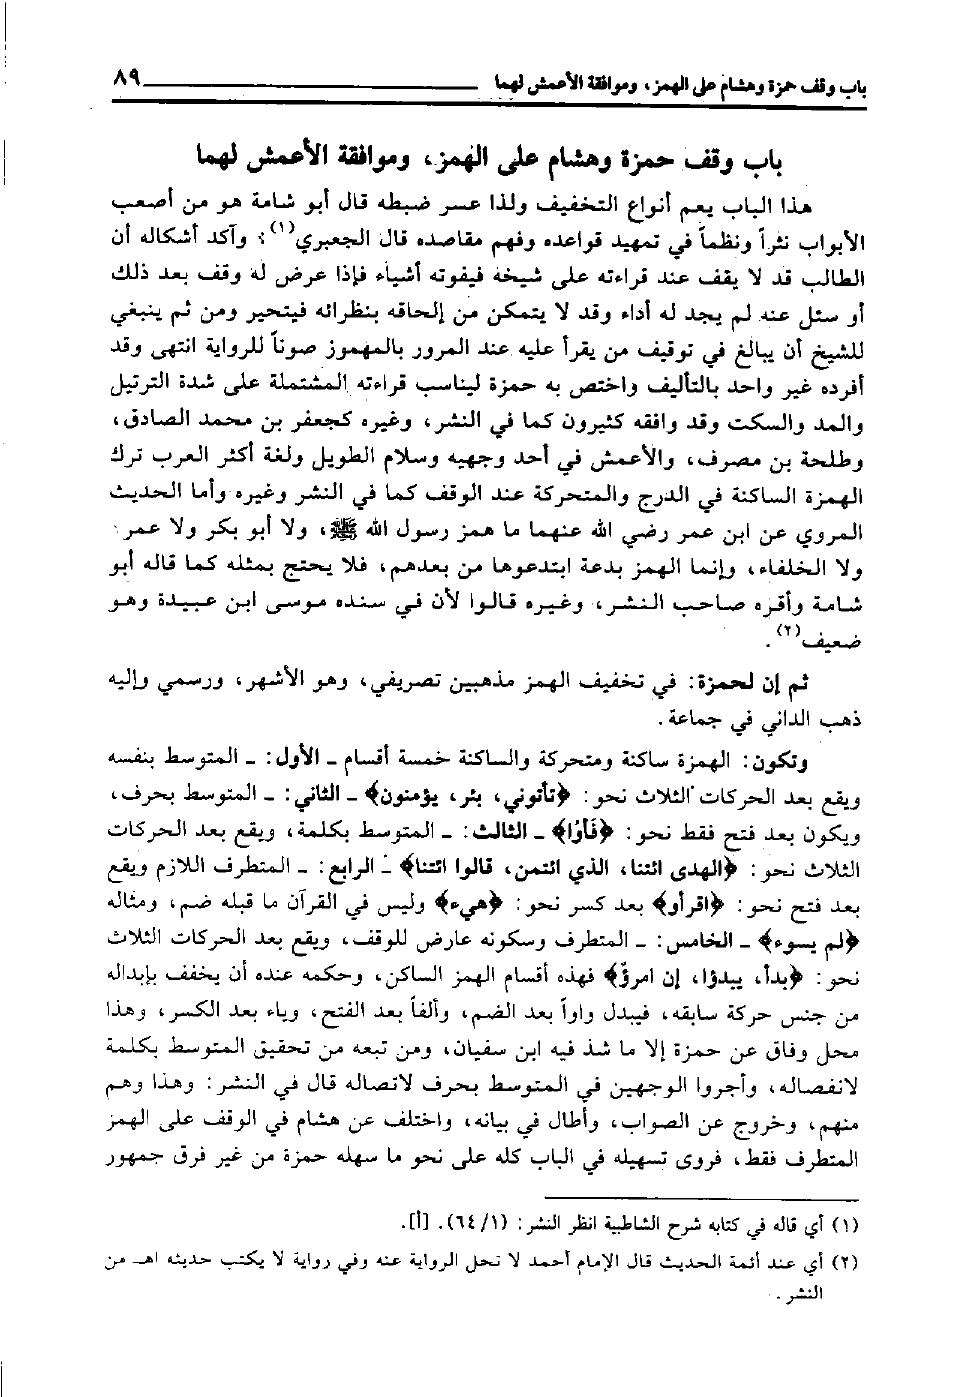 باب وقف حمزة وهشام على الهمز، وموافقة الأعمش لهما ــــــ ٨٩
باب وقف حمزة وهشام على الهمز، وموافقة الأعمش لهما
هذا الباب يعم أنواع التخفيف ولذا عسر ضبطه قال أبو شامة هو من أصعب
الأبواب نثراً ونظماً في تمهيد قواعده وفهم مقاصده قال الجعبري(١): وآكد أشكاله أن
الطالب قد لا يقف عند قراءته على شيخه فيفوته أشياء فإذا عرض له وقف بعد ذلك
أو سئل عنه لم يجد له أداء وقد لا يتمكن من إلحاقه بنظرائه فيتحير ومن ثم ينبغي
للشيخ أن يبالغ في توقيف من يقرأ عليه عند المرور بالمهموز صوناً للرواية انتهى وقد
أفرده غير واحد بالتأليف واختص به حمزة ليناسب قراءته المشتملة على شدة الترتيل
والمد والسكت وقد وافقه كثيرون كما في النشر، وغيره كجعفر بن محمد الصادق،
وطلحة بن مصرف، والأعمش في أحد وجهيه وسلام الطويل ولغة أكثر العرب ترك
الهمزة الساكنة في الدرج والمتحركة عند الوقف كما في النشر وغيره وأما الحديث
المروي عن ابن عمر رضي الله عنهما ما همز رسول الله ﷺ، ولا أبو بكر ولا عمر
ولا الخلفاء، وإنما الهمز بدعة ابتدعوها من بعدهم، فلا يحتج بمثله كما قاله أبو
شامة وأقره صاحب النشر، وغيره قالوا لأن في سنده موسى ابن عبيدة وهو
ضعيف(٢).
ثم إن لحمزة: في تخفيف الهمز مذهبين تصريفي، وهو الأشهر، ورسمي وإليه
ذهب الداني في جماعة.
وتكون: الهمزة ساكنة ومتحركة والساكنة خمسة أقسام ـ الأول: ـ المتوسط بنفسه
ويقع بعد الحركات الثلاث نحو: ﴿تأتوني، بئر، يؤمنون﴾ ـ الثاني: ـ المتوسط بحرف،
ويكون بعد فتح فقط نحو: ﴿فَأْوُا﴾ ـ الثالث: ـ المتوسط بكلمة، ويقع بعد الحركات
الثلاث نحو: ﴿الهدى ائتنا، الذي ائتمن، قالوا ائتنا﴾ ـ الرابع: ـ المتطرف اللازم ويقع
بعد فتح نحو: ﴿اقرأو﴾ بعد كسر نحو: ﴿هيء﴾ وليس في القرآن ما قبله ضم، ومثاله
﴿لم يسوء﴾ ـ الخامس: ـ المتطرف وسكونه عارض للوقف، ويقع بعد الحركات الثلاث
نحو: ﴿بدأ، يبدؤا، إن امرؤ﴾ فهذه أقسام الهمز الساكن، وحكمه عنده أن يخفف بإبداله
من جنس حركة سابقه، فيبدل واواً بعد الضم، وألفاً بعد الفتح، وياء بعد الكسر، وهذا
محل وفاق عن حمزة إلا ما شذ فيه ابن سفيان، ومن تبعه من تحقيق المتوسط بكلمة
لانفصاله، وأجروا الوجهين في المتوسط بحرف لاتصاله قال في النشر: وهذا وهم
منهم، وخروج عن الصواب، وأطال في بيانه، واختلف عن هشام في الوقف على الهمز
المتطرف فقط، فروى تسهيله في الباب كله على نحو ما سهله حمزة من غير فرق جمهور
(١) أي قاله في كتابه شرح الشاطبية انظر النشر: (٦٤/١). [أ].
(٢) أي عند أئمة الحديث قال الإمام أحمد لا تحل الرواية عنه وفي رواية لا يكتب حديثه اهـ من
النشر.